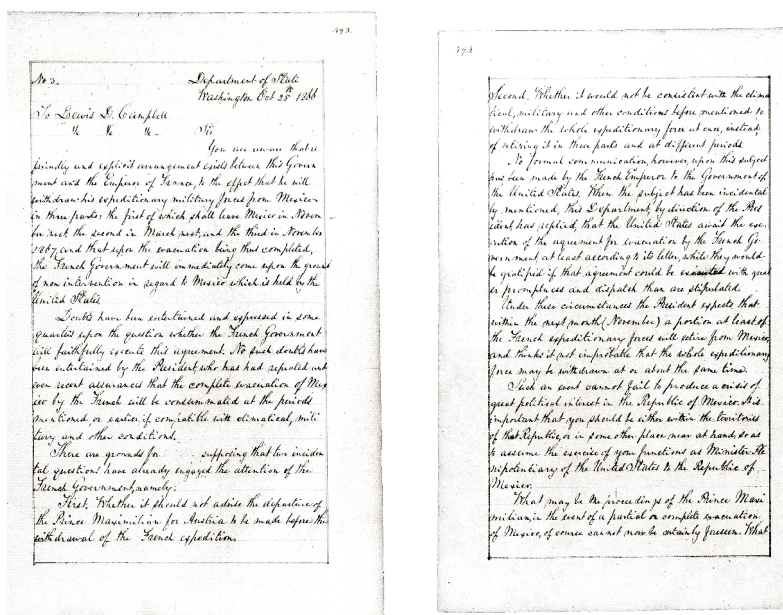 493.
No 3.
Department of State
Washington Oct 25th 1866
To Lewis D. Campbell
&c &c &c
Sir
You are aware that a
friendly and explicit arrangement exists between this Govern
ment and the Emperor of France, to the effect that he will
withdraw his expeditionary military forces from Mexico
in three parts: the first of which shall leave Mexico in Novem
ber next, the second in March next, and the third in November
1867, and that upon the evacuation being thus completed,
the French Government will immediately come upon the ground
of non intervention in regard to Mexico which is held by the
United States
Doubts have been entertained and expressed in some
quarters upon the question whether the French Government
will faithfully execute this agreement. No such doubts have
been entertained by the President, who has had repeated and
even recent assurances that the complete evacuation of Mex
ico by the French will be consummated at the periods
mentioned or earlier if compatible with climatical, mili
tary and other conditions.
There are grounds for supposing that two inciden
tal questions have already engaged the attention of the
French Government, namely:
First. Whether it should not advise the departure of
the Prince Maximilian for Austria to be made before the
withdrawal of the French expedition.
494
Second. Whether it would not be consistent with the clima
tical, military and other conditions before mentioned to
withdraw the whole expeditionary force at once, instead
of retiring it in three parts and at different periods
No formal communication, however, upon this subject
has been made by the French Emperor to the Government of
the United States. When the subject has been incidental
ly mentioned, this Department, by direction of the Pres
ident, has replied, that the United States await the exe
cution of the agreement for evacuation by the French Go
vernment at least according to its letter, while they would
be gratified if that agreement could be executed with great
er promptness and dispatch than are stipulated.
Under these circumstances the President expects that
within the next month (November) a portion at least of
the French expeditionary forces will retire from Mexico,
and thinks it not improbable that the whole expeditionary
force may be withdrawn at or about the same time.
Such an event cannot fail to produce a crisis of
great political interest in the Republic of Mexico. It is
important that you should be either within the territories
of that Republic, or in some other place near at hand, so as
to assume the exercise of your functions as Minister Ple
nipotentiary of the United States to the Republic of
Mexico.
What may be the proceedings of the Prince Maxi
milian, in the event of a partial or complete evacuation
of Mexico, of course cannot now be certainly foreseen. What